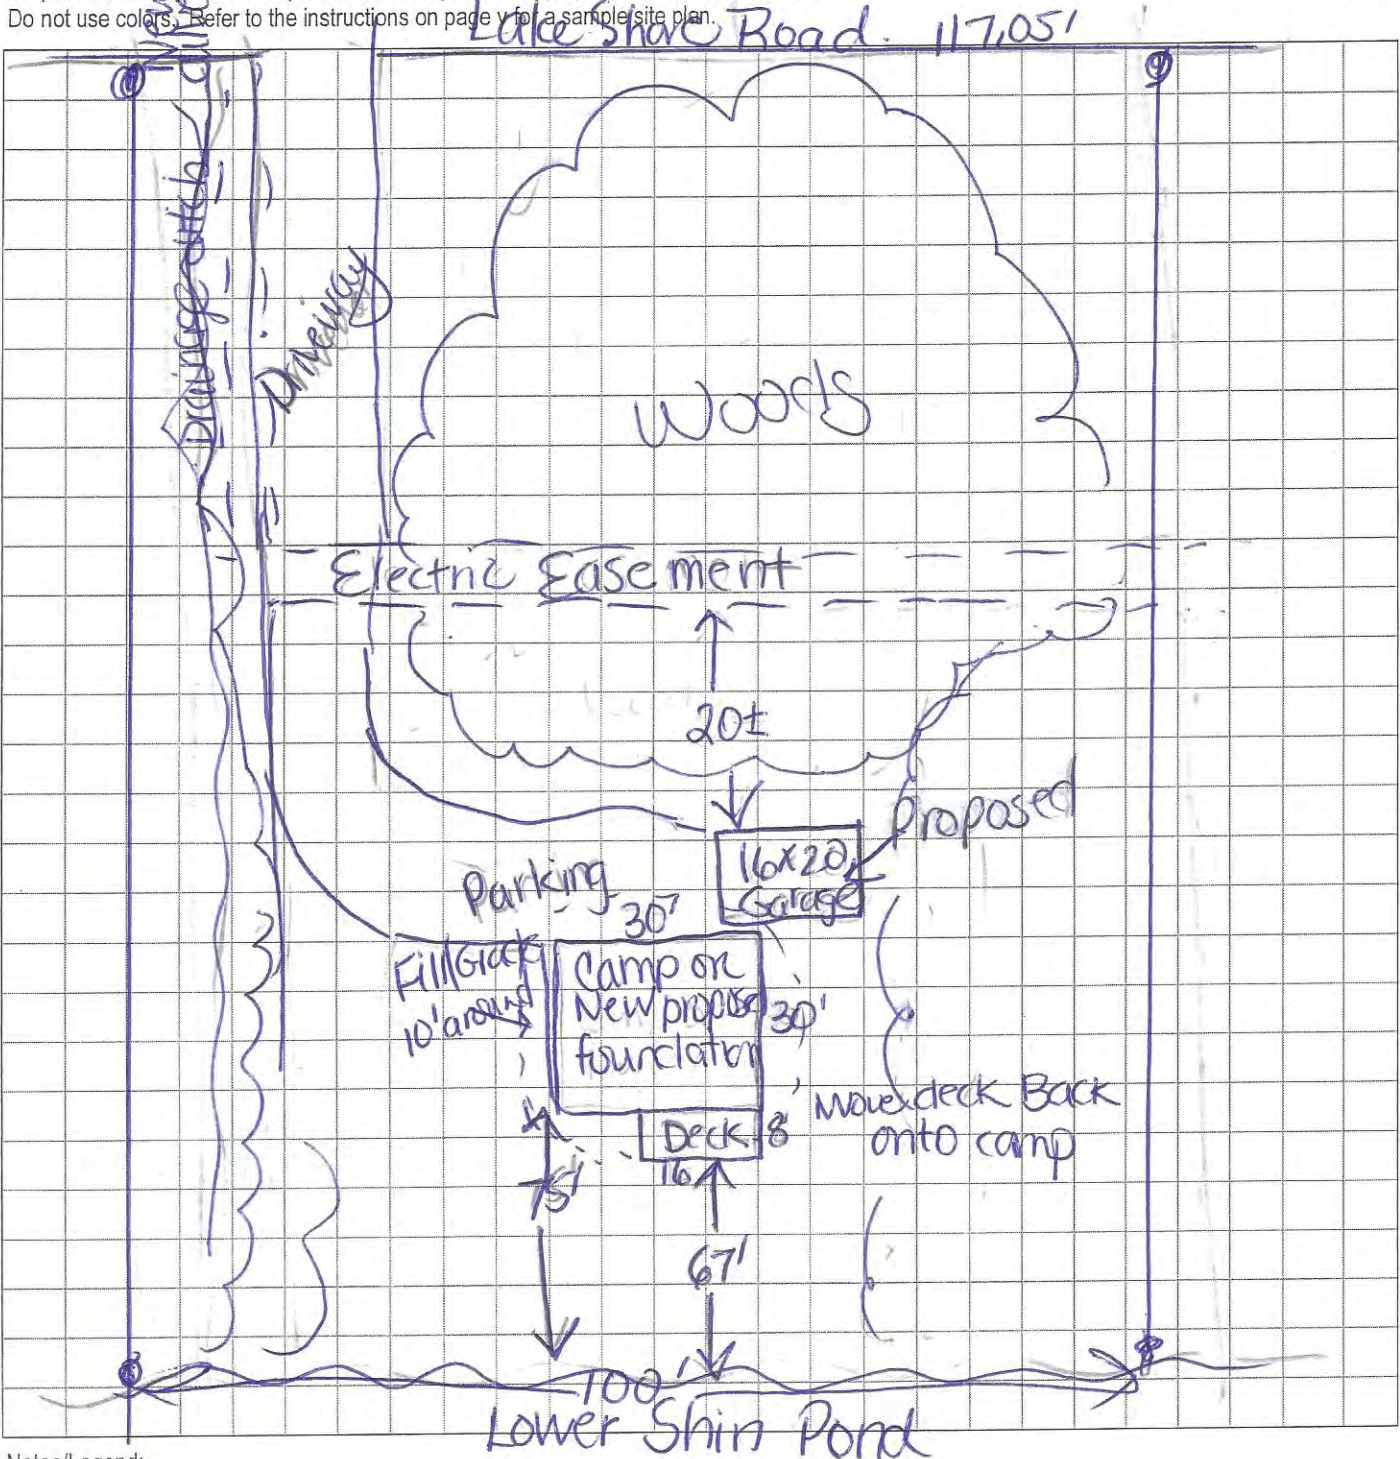 Do not use colors. Refer to the instructions on page v for a sample site plan.
Lake Shore Road. 117.05'
Drainage ditch
Driveway
Woods
Electric Easement
20±
Proposed
16x20
Garage
Parking
30'
Fill/Grade
10' around
Camp on
New proposed
foundation
30'
Move deck Back
onto camp
Deck 8'
16
75'
67'
100'
Lower Shin Pond